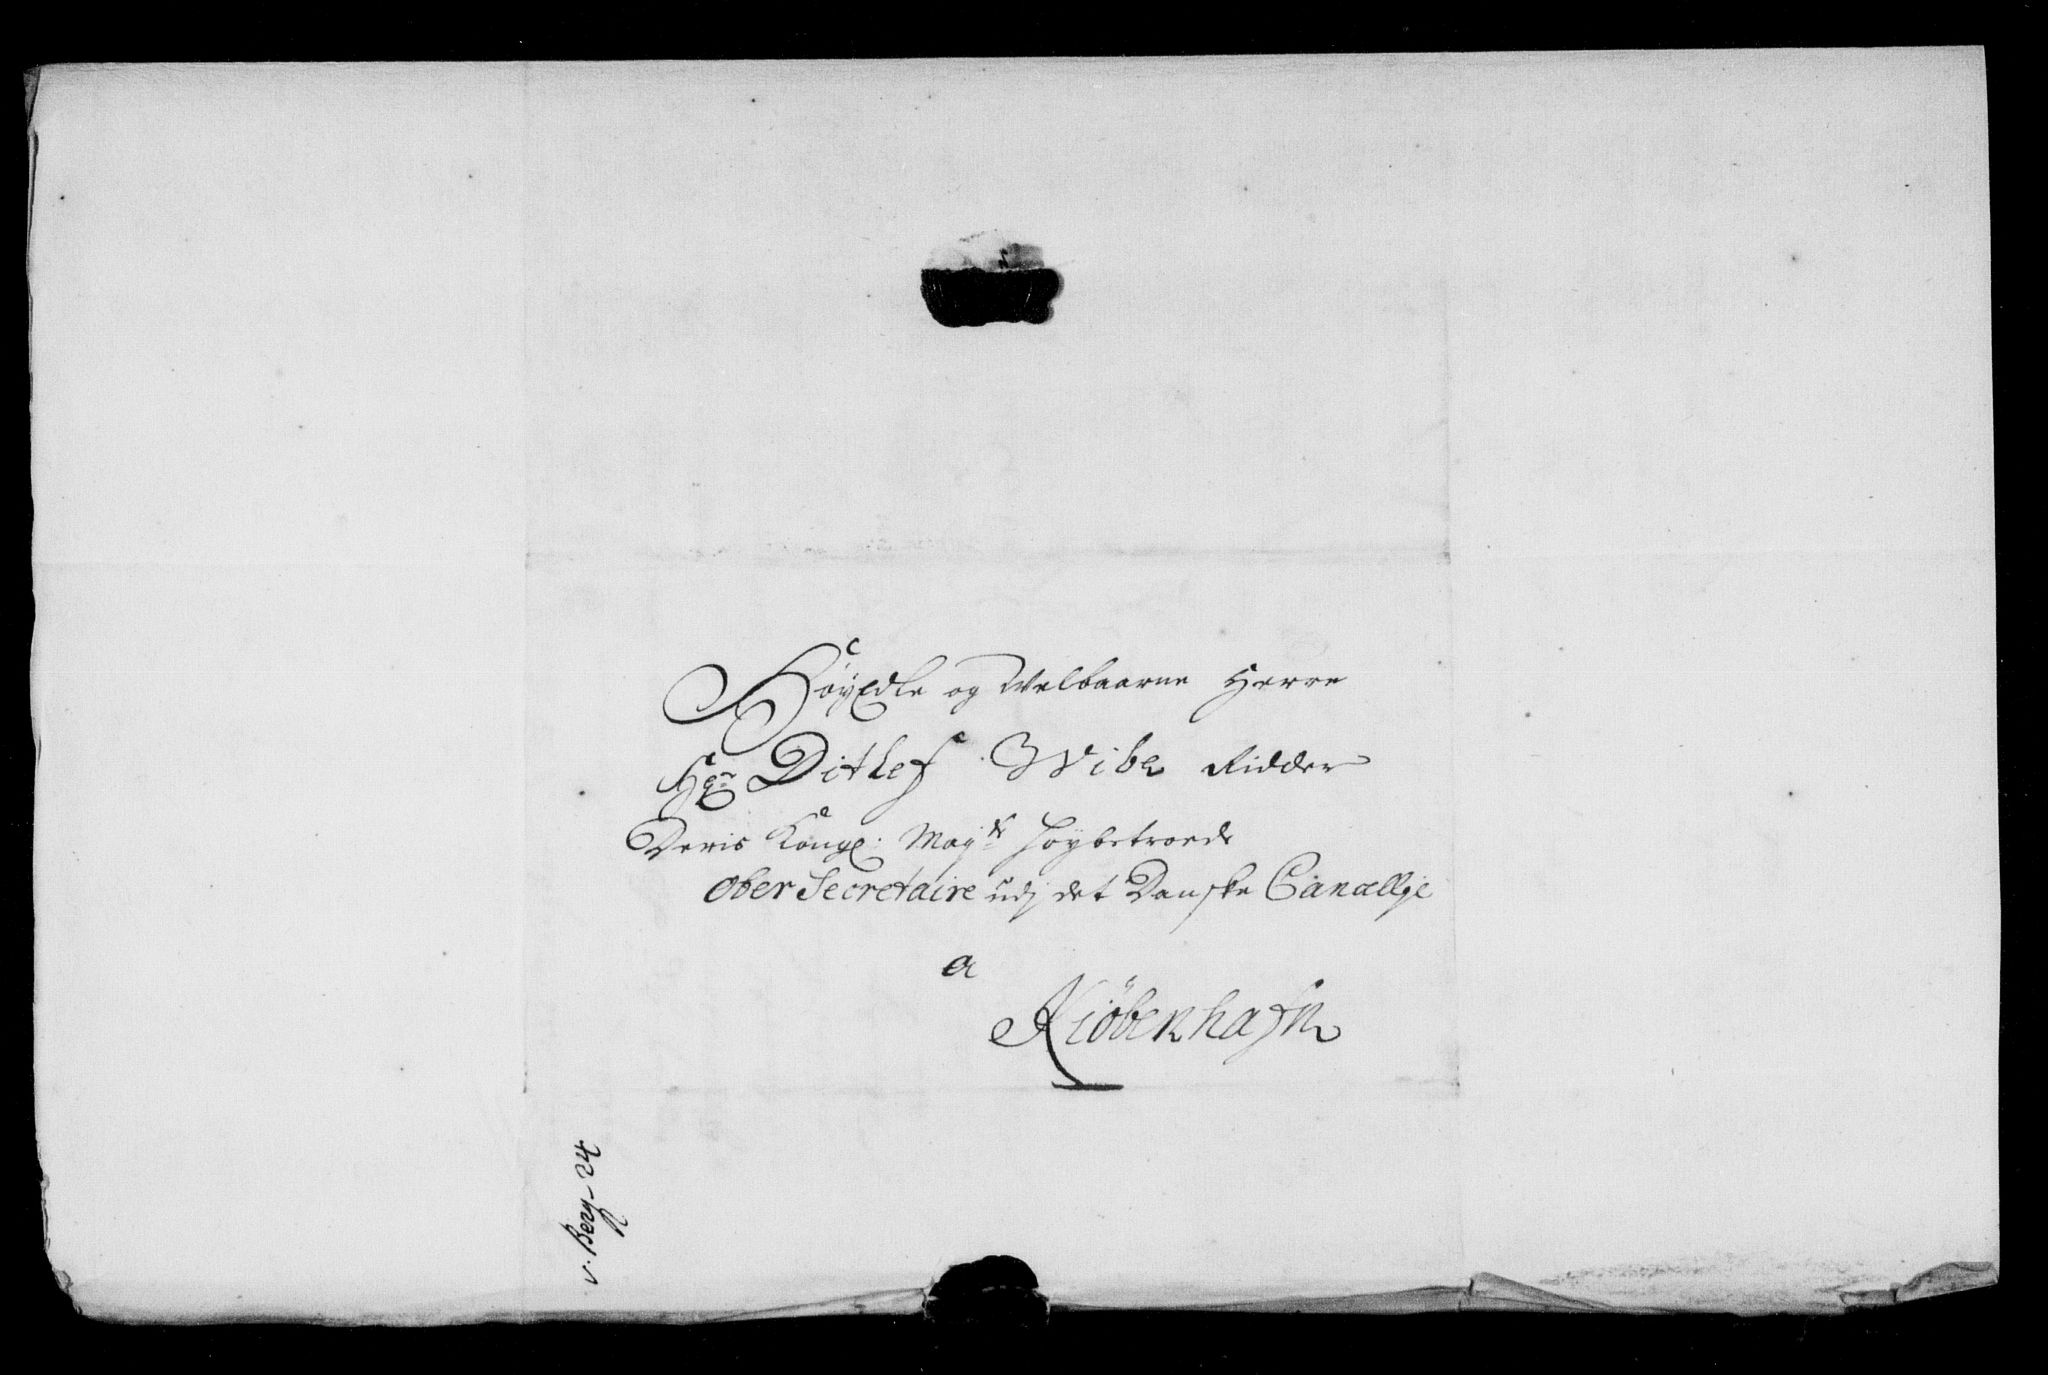 HöyEdle og Welbaarne Herre
Hr Ditlef Wibe Ridder
Deris Kongl: Mayts höybetroede
Ober Secretaire udj det Danske Cancellje
a
Kiöbenhafn
v. Berg- 24